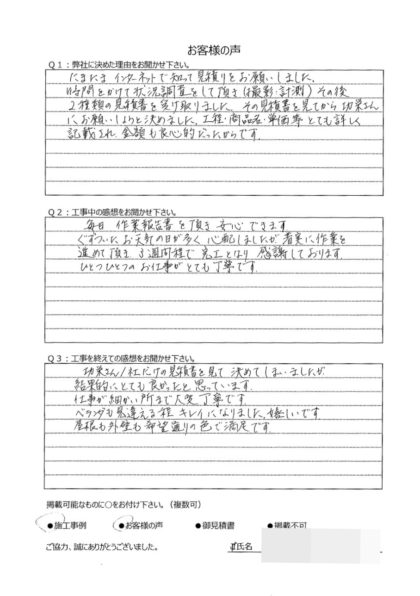 お客様の声
Q1：弊社に決めた理由をお聞かせ下さい。
たまたまインターネットで知って見積りをお願いしました。
時間をかけて状況調査をして頂き（撮影・計測）その後
2種類の見積書を受け取りました。その見積書を見てから功栄さん
にお願いしようと決めました。工程・商品名・単価等とても詳しく
記載され、金額も良心的だったからです。
Q2：工事中の感想をお聞かせ下さい。
毎日 作業報告書を頂き 安心できます
ぐずついたお天気の日が多く 心配しましたが 着実に作業を
進めて頂き 3週間程で 完工となり 感謝しております
ひとつひとつのお仕事がとても丁寧です
Q3：工事を終えての感想をお聞かせ下さい。
功栄さん1社だけの見積書を見て 決めてしまいましたが
結果的にとても良かったと思っています。
仕事が細かい所まで大変丁寧です
ベランダも見違える程キレイになりました。嬉しいです
屋根も外壁も希望通りの色で満足です
掲載可能なものに○をお付け下さい。（複数可）
●施工事例 ●お客様の声 ●御見積書 ●掲載不可
ご協力、誠にありがとうございました。
氏名